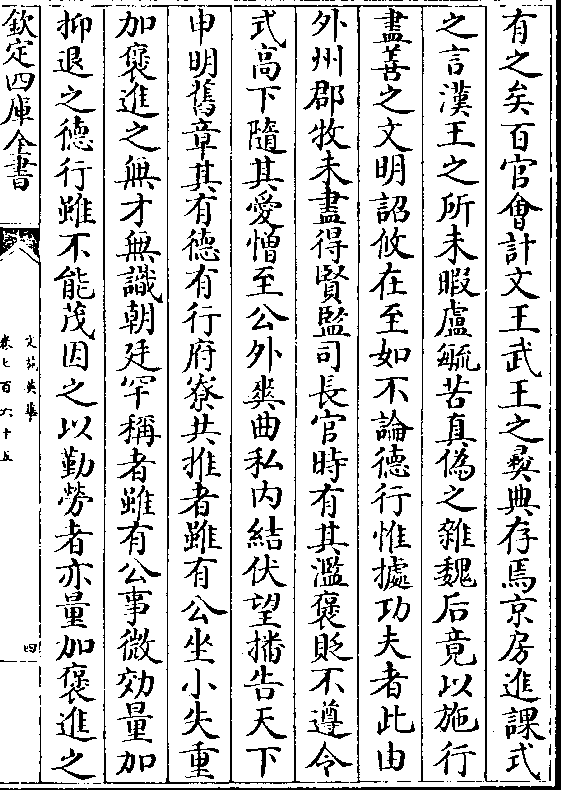 有之矣百官會計文王武王之彛典存焉京房進課式
之言漢王之所未暇盧毓苦真偽之雜魏后竟以施行
盡善之文明詔攸在至如不論德行惟據功夫者此由
外州郡牧未盡得賢監司長官時有其濫褒貶不遵令
式高下隨其愛憎至公外爽曲私内結伏望播告天下
申明舊章其有德有行府寮共推者雖有公坐小失重
加褒進之無才無識朝廷罕稱者雖有公事微効量加
抑退之德行雖不能茂因之以勤勞者亦量加褒進之
欽定四庫全書
文苑英華
卷七百六十五
四